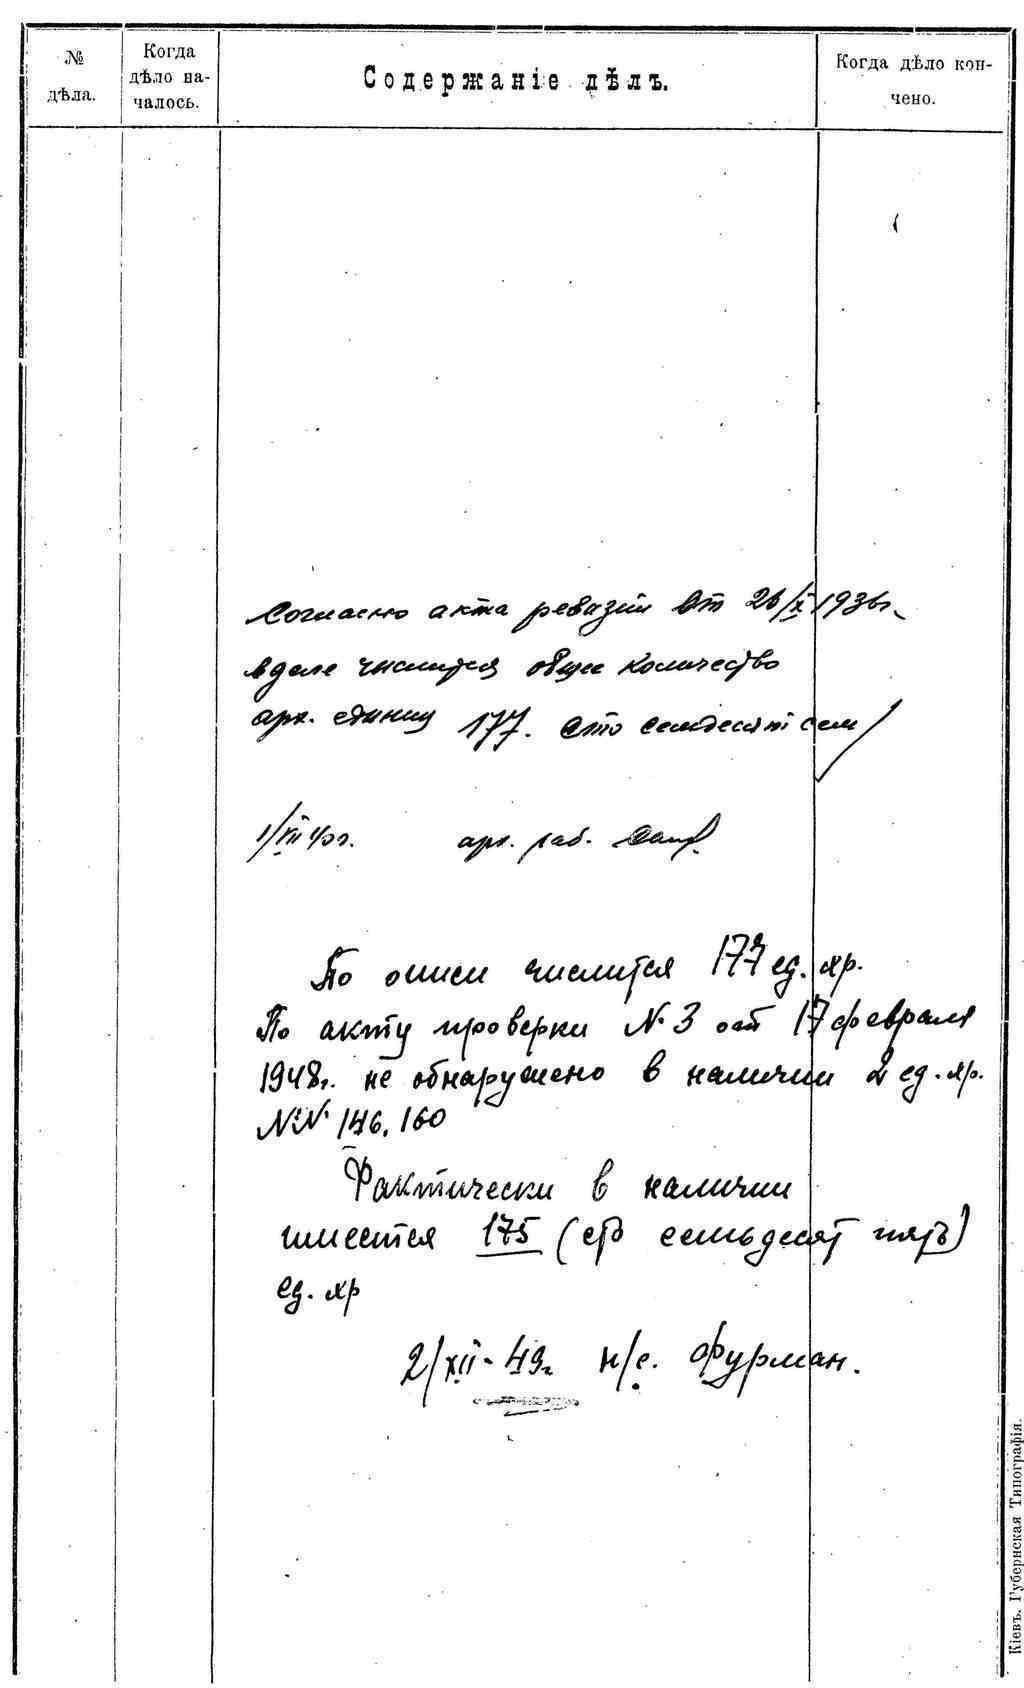 №
дѣла.
Когда
дѣло на-
чалось.
Содержаніе дѣлъ.
Когда дѣло кон-
чено.
Согласно акта ревизии от 26/X 1936г.
в деле числится общее количество
арх. единиц 177. сто семдесят сем
1/XII 40г. арх. раб.
По описи числится 177 ед. хр.
По акту проверки № 3 от 17 февраля
1948г. не обнаружено в наличии 2 ед. хр.
№№ 146, 160
Фактически в наличии
имеется 175 (сто семьдесят пять)
ед. хр
2/XII-49г. н/с. Фурман.
Кіевъ. Губернская Типографія.